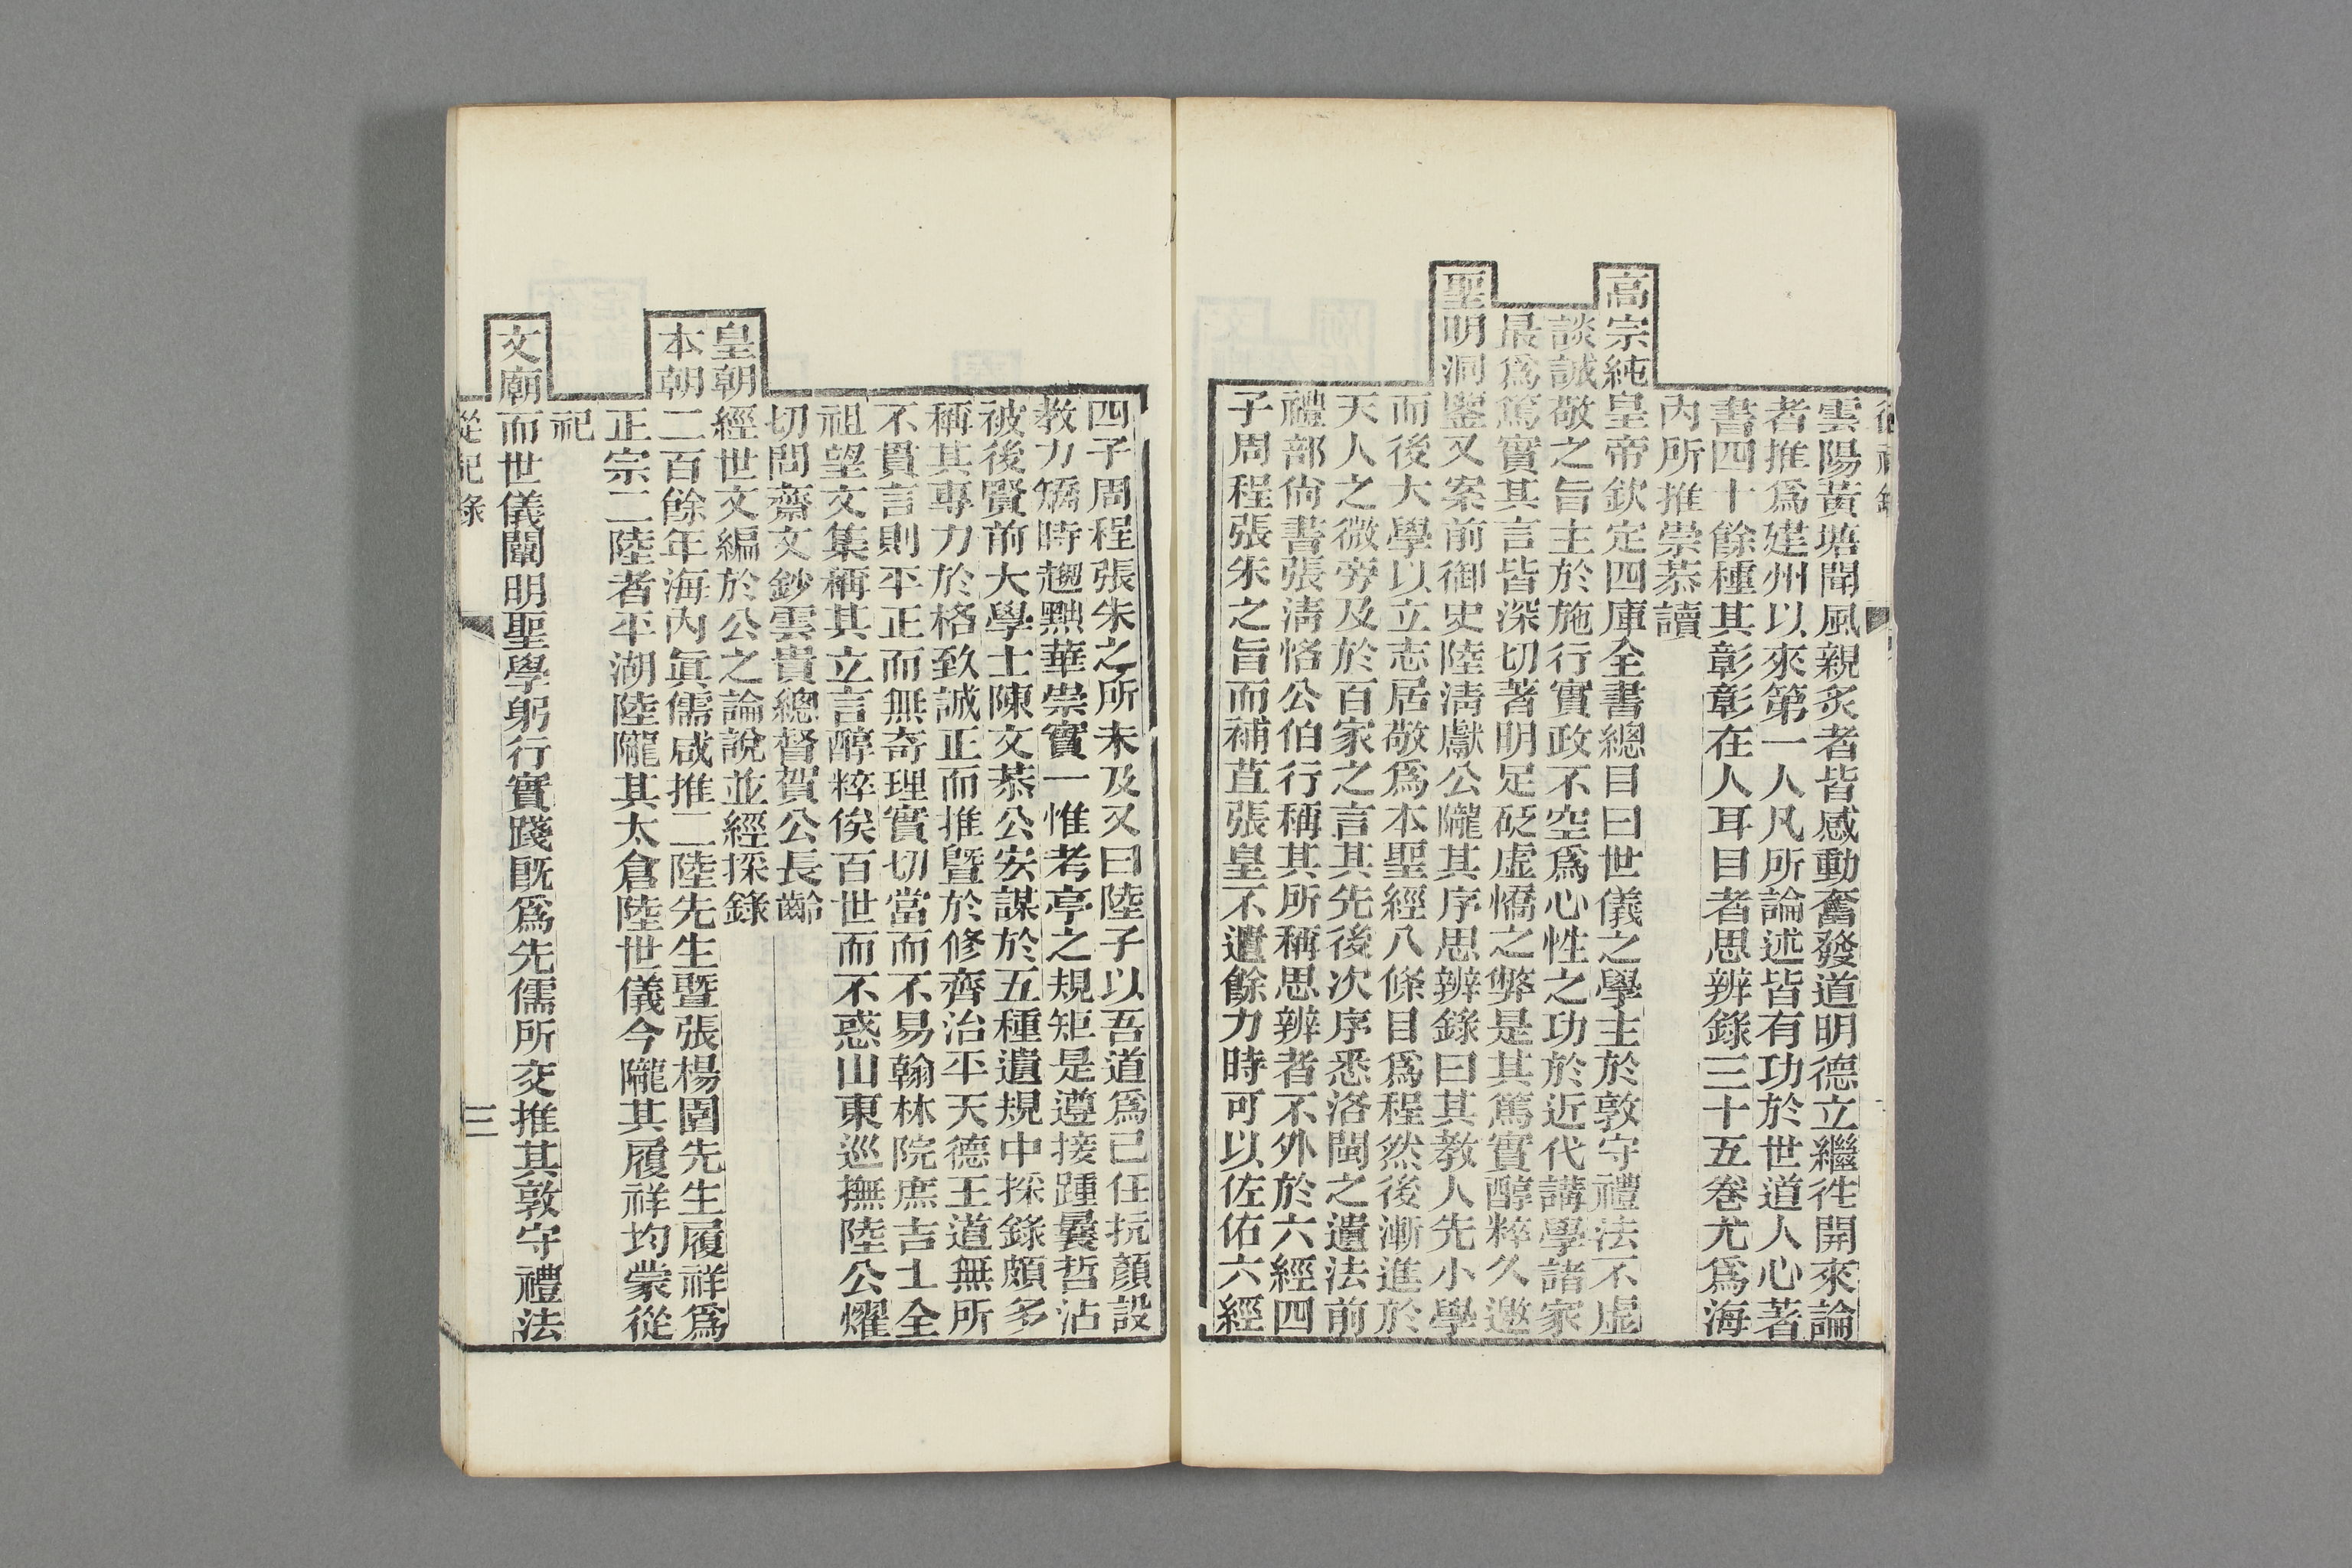 雲陽黃塘聞風親炙者皆感動奮發道明德立繼徃開來論
者推爲建州以來第一人凡所論述皆有功於世道人心著
書四十餘種其彰彰在人耳目者思辨錄三十五卷尤爲海
內所推崇恭讀
高宗純皇帝欽定四庫全書總目曰世儀之學主於敦守禮法不虛
談誠敬之旨主於施行實政不空爲心性之功於近代講學諸家
最爲篤實其言皆深切著明足砭虛憍之弊是其篤實醇粹久邀
聖明洞鑒又案前御史陸淸獻公隴其序思辨錄曰其教人先小學
而後大學以立志居敬爲本聖經八條目爲程然後漸進於
天人之微旁及於百家之言其先後次序悉洛閩之遺法前
禮部尙書張淸恪公伯行稱其所稱思辨者不外於六經四
子周程張朱之旨而補苴張皇不遺餘力時可以佐佑六經
四子周程張朱之所未及又曰陸子以吾道爲己任抗顏設
教力矯時趨黜華崇實一惟考亭之規矩是遵接踵曩哲沾
被後賢前大學士陳文恭公宏謀於五種遺規中採錄頗多
稱其專力於格致誠正而推曁於修齊治平天德王道無所
不貫言則平正而無奇理實切當而不易翰林院庶吉士全
祖望文集稱其立言醇粹俟百世而不惑山東巡撫陸公燿
切問齋文鈔雲貴總督賀公長齡
皇朝經世文編於公之論說並經採錄
本朝二百餘年海內眞儒咸推二陸先生暨張楊園先生履祥爲
正宗二陸者平湖陸隴其太倉陸世儀今隴其履祥均蒙從
祀
文廟而世儀闡明聖學躬行實踐既爲先儒所交推其敦守禮法
從祀錄
三